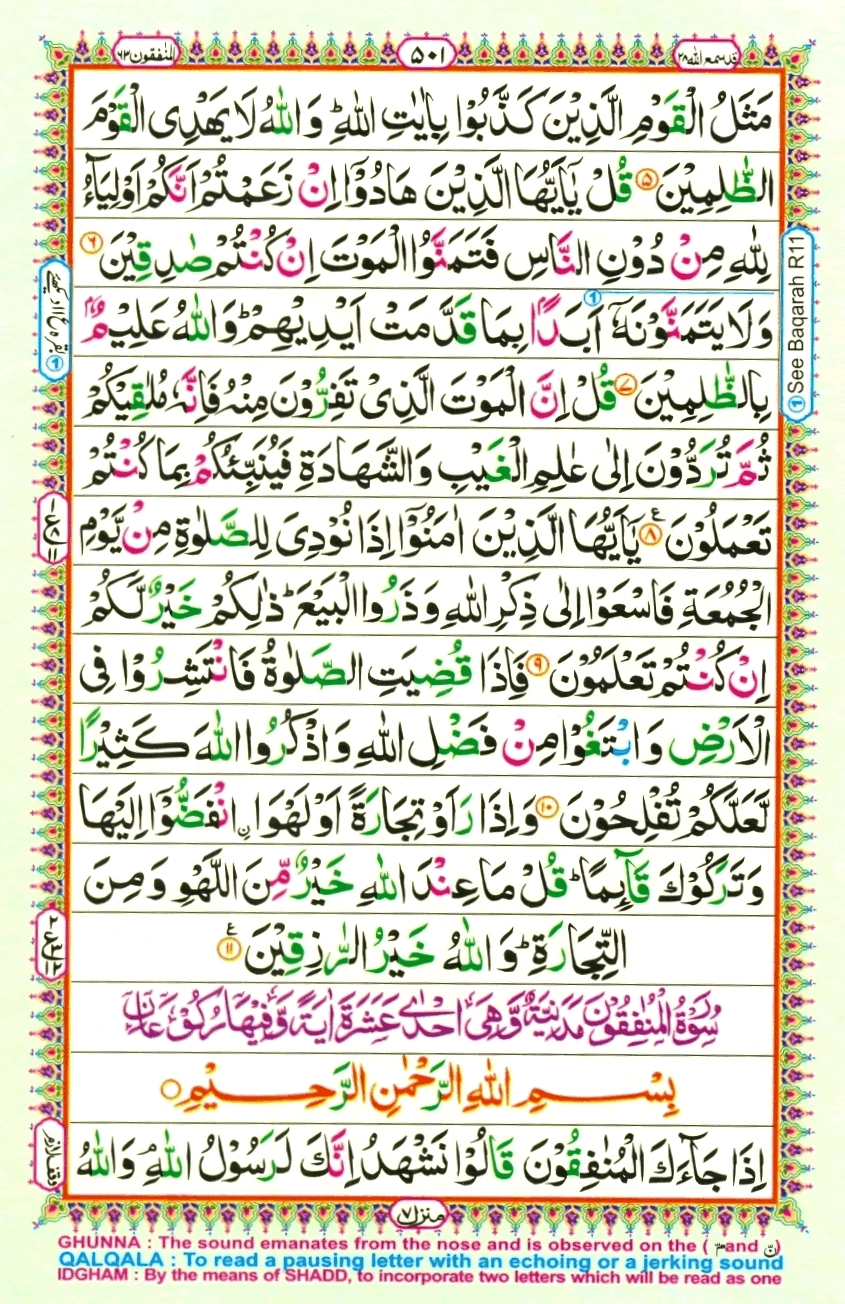 قد سمع الله ۲۸
۵۰۱
المنٰفقون ۶۳
مَثَلُ الْقَوْمِ الَّذِيْنَ كَذَّبُوْا بِاٰيٰتِ اللّٰهِ ؕ وَاللّٰهُ لَا يَهْدِى الْقَوْمَ
الظّٰلِمِيْنَ ۵ قُلْ يٰٓاَيُّهَا الَّذِيْنَ هَادُوْٓا اِنْ زَعَمْتُمْ اَنَّكُمْ اَوْلِيَآءُ
لِلّٰهِ مِنْ دُوْنِ النَّاسِ فَتَمَنَّوُا الْمَوْتَ اِنْ كُنْتُمْ صٰدِقِيْنَ ۶
وَلَا يَتَمَنَّوْنَهٗٓ اَبَدًاۢ بِمَا قَدَّمَتْ اَيْدِيْهِمْ ؕ وَاللّٰهُ عَلِيْمٌۢ
بِالظّٰلِمِيْنَ ۷ قُلْ اِنَّ الْمَوْتَ الَّذِىْ تَفِرُّوْنَ مِنْهُ فَاِنَّهٗ مُلٰقِيْكُمْ
ثُمَّ تُرَدُّوْنَ اِلٰى عٰلِمِ الْغَيْبِ وَالشَّهَادَةِ فَيُنَبِّئُكُمْ بِمَا كُنْتُمْ
تَعْمَلُوْنَ ۸ ع يٰٓاَيُّهَا الَّذِيْنَ اٰمَنُوْٓا اِذَا نُوْدِىَ لِلصَّلٰوةِ مِنْ يَّوْمِ
الْجُمُعَةِ فَاسْعَوْا اِلٰى ذِكْرِ اللّٰهِ وَذَرُوا الْبَيْعَ ؕ ذٰلِكُمْ خَيْرٌ لَّكُمْ
اِنْ كُنْتُمْ تَعْلَمُوْنَ ۹ فَاِذَا قُضِيَتِ الصَّلٰوةُ فَانْتَشِرُوْا فِى
الْاَرْضِ وَابْتَغُوْا مِنْ فَضْلِ اللّٰهِ وَاذْكُرُوا اللّٰهَ كَثِيْرًا
لَّعَلَّكُمْ تُفْلِحُوْنَ ۱۰ وَاِذَا رَاَوْ تِجَارَةً اَوْ لَهْوَا ۨانْفَضُّوْٓا اِلَيْهَا
وَتَرَكُوْكَ قَآئِمًا ؕ قُلْ مَا عِنْدَ اللّٰهِ خَيْرٌ مِّنَ اللَّهْوِ وَمِنَ
التِّجَارَةِ ؕ وَاللّٰهُ خَيْرُ الرّٰزِقِيْنَ ۱۱ ع
سُوْرَةُ الْمُنٰفِقُوْنَ مَدَنِيَّةٌ وَّهِىَ اِحْدٰى عَشَرَةَ اٰيَةً وَّفِيْهَا رُكُوْعَانِ
بِسْمِ اللّٰهِ الرَّحْمٰنِ الرَّحِيْمِ
اِذَا جَآءَكَ الْمُنٰفِقُوْنَ قَالُوْا نَشْهَدُ اِنَّكَ لَرَسُوْلُ اللّٰهِ ۘ وَاللّٰهُ
① See Baqarah R11
وقف لازم
منزل ۷
GHUNNA : The sound emanates from the nose and is observed on the ( مّ and نّ)
QALQALA : To read a pausing letter with an echoing or a jerking sound
IDGHAM : By the means of SHADD, to incorporate two letters which will be read as one